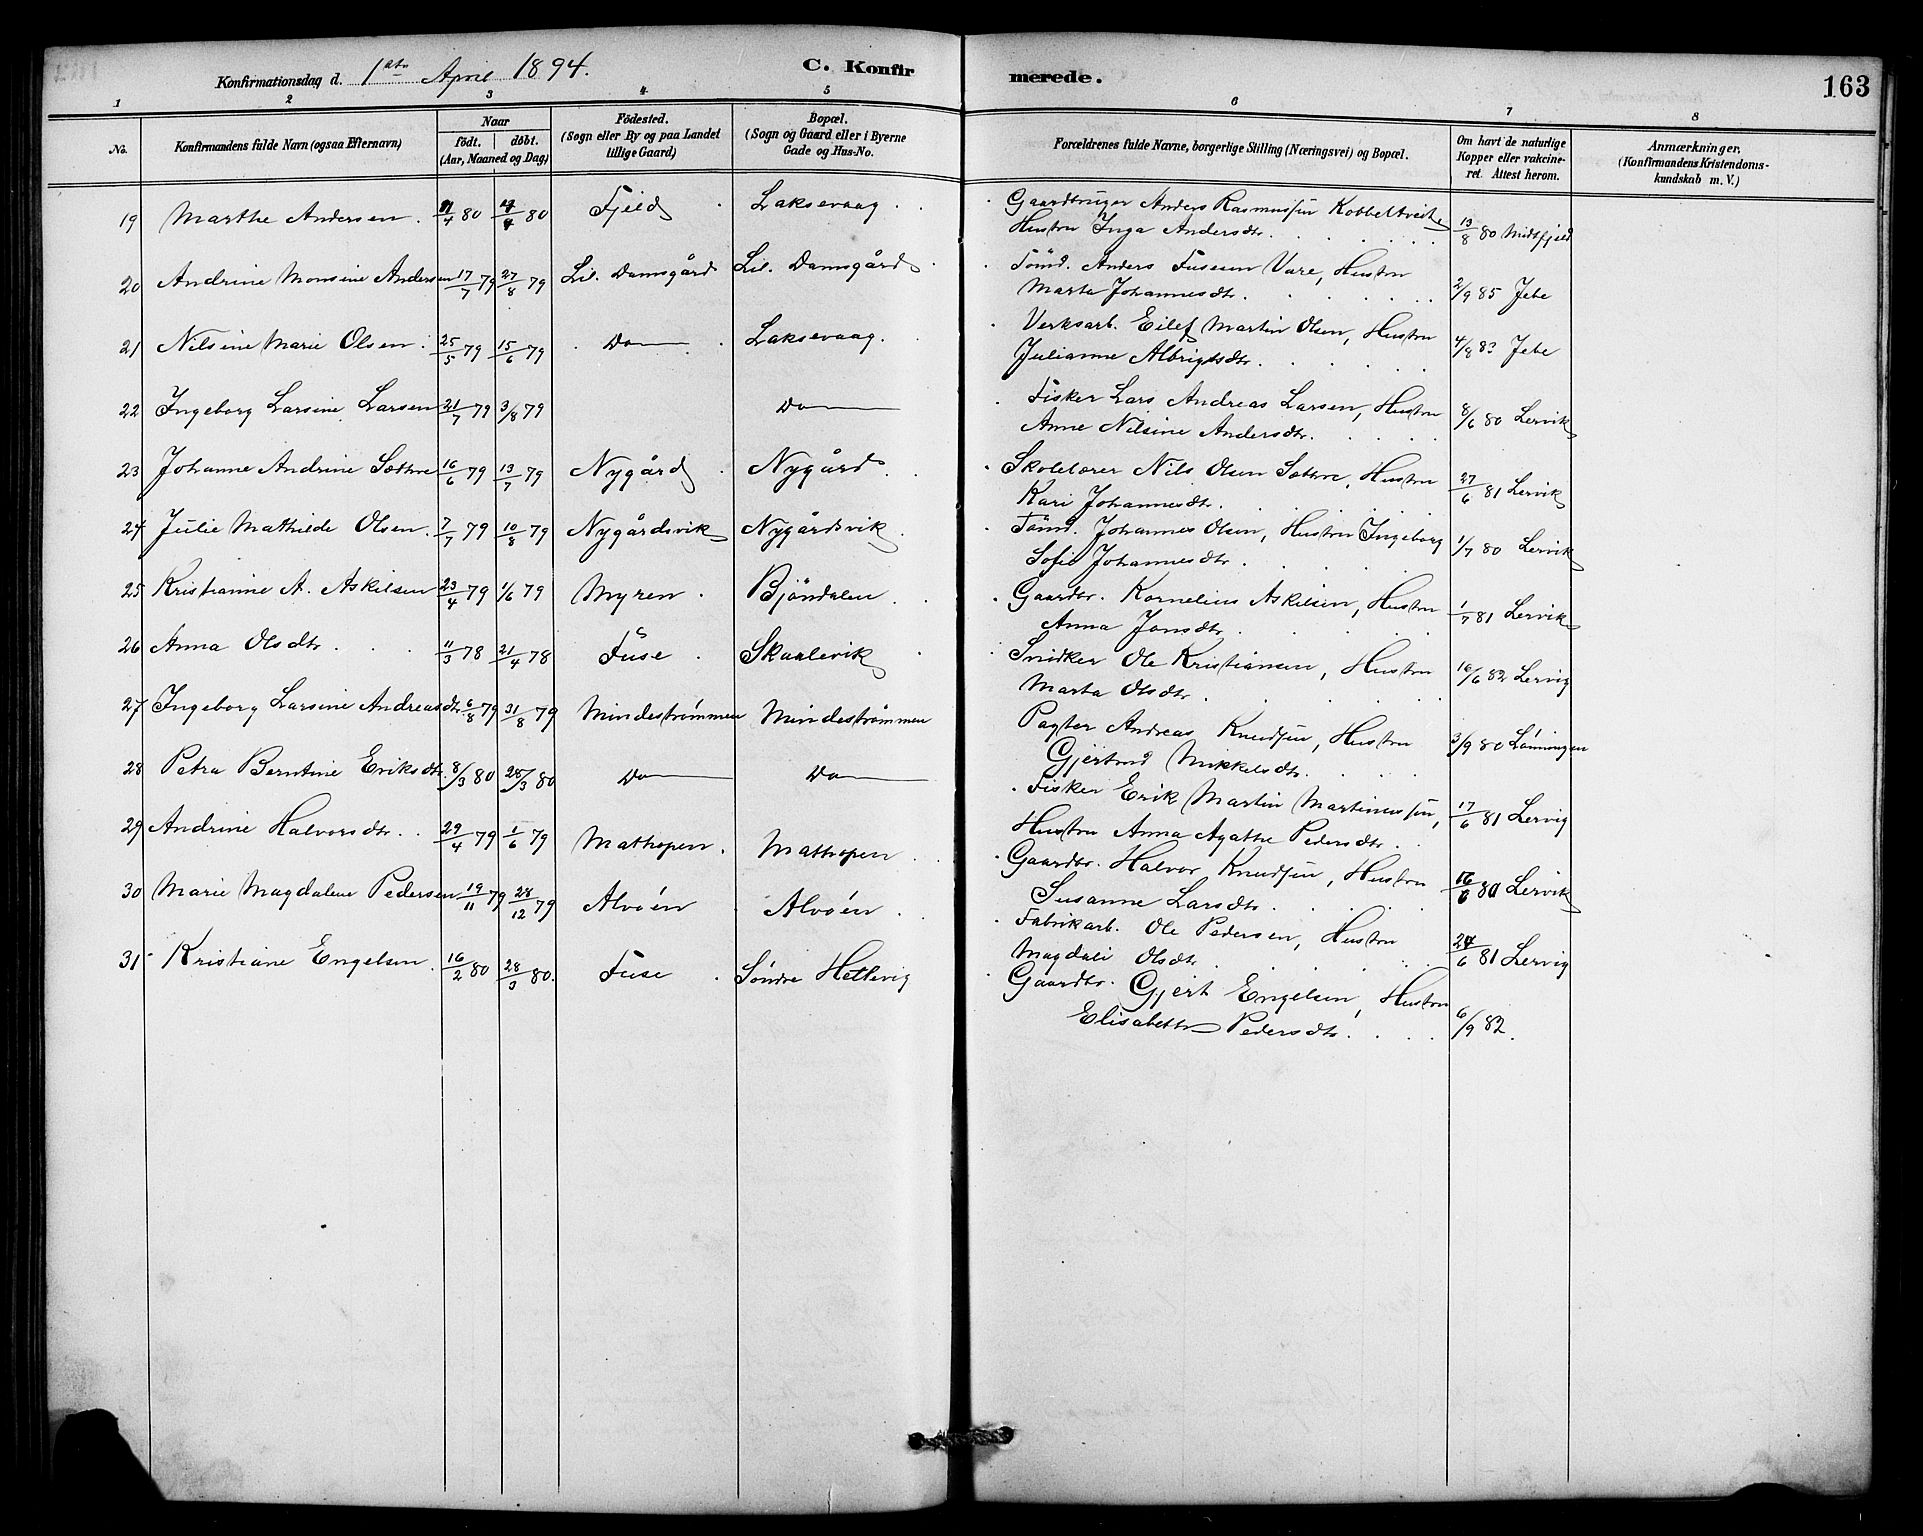 Konfirmationsdag d. 1ste April 1894. C. Konfirmerede. 163
1 2 3 4 5 6 7 8
No. Konfirmandens fulde Navn (ogsaa Efternavn) Naar födt. döbt. (Aar, Maaned og Dag) Födested. (Sogn eller By og paa Landet tillige Gaard) Bopæl. (Sogn og Gaard eller i Byerne Gade og Hus-No. Forældrenes fulde Navne, borgerlige Stilling (Næringsvei) og Bopæl. Om havt de naturlige Kopper eller vakcineret. Attest herom. Anmærkninger. (Konfirmandens Kristendomskundskab m. V.)
19 Marthe Andersen. /4 80 /4 80 Fjeld Laksevaag Gaardbruger Anders Rasmussen Kobbeltveit
Hustru Inga Andersdtr. 13/8 80 Midtfjeld
20 Andrine Monsine Andersen 17/7 79 27/8 79 Lil. Damsgård Lil. Damsgård Tömd. Anders Vare, Hustru
Marta Johannesdtr. 2/9 85 Jebe
21 Nilsine Marie Olsen. 25/5 79 15/6 79 Do Laksevaag. Verksarb. Eilef Martin Olsen, Hustru
Julianne Albrigtsdtr. 4/8 83 Jebe
22 Ingeborg Larsine Larsen 21/7 79 3/8 79 Do Fisker Lars Andreas Larsen, Hustru
Anne Nilsine Andersdtr. 8/6 80 Lervik
23 Johanne Andrine Sættre 16/6 79 13/7 79 Nygård Nygård Skolelærer Nils Olsen Sættre, Hustru
Kari Johannesdtr. 27/6 81 Lervik
24 Julie Mathilde Olsen. 7/7 79 10/8 79 Nygårdsvik Nygårdsvik Tömd. Johannes Olsen, Hustru Ingeborg
Sofie Johannesdtr. 1/7 80 Lervik
25 Kristianne A. Askilsen 23/4 79 1/6 79 Myren. Bjöndalen Gaardbr. Kornelius Askilsen, Hustru
Anna Jonsdtr. 1/7 81 Lervik
26 Anna Olsdtr. 11/3 78 21/4 78 Fuse Skaalevik Snidker Ole Kristiansen, Hustru
Marta Olsdtr. 16/6 82 Lervig
27 Ingeborg Larsine Andreasdtr 6/8 79 31/8 79 Mindeströmmen Mindeströmmen Pagter Andreas Knudsen, Hustru
Gjertrud Mikkelsdtr. 3/9 80 Lönningen
28 Petra Berntine Eriksdtr. 8/3 80 28/3 80 Do Do Fisker Erik Martin Martinussen,
Hustru Anna Agathe Pedersdtr. 17/6 81 Lervig
29 Andrine Halvorsdtr. 29/4 79 1/6 79 Mathopen. Mathopen Gaardbr. Halvor Knudsen, Hustru
Susanne Larsdtr. 16/6 80 Lervik
30 Marie Magdalene Pedersen 19/11 79 28/12 79 Alvöen Alvöen Fabrikarb. Ole Pedersen, Hustru
Magdali Olsdtr. 24/6 81 Lervig
31 Kristiane Engelsen. 16/2 80 28/3 80. Fuse Söndre Hettevig Gaardbr. Gjert Engelsen, Hustru
Elisabeth Pedersdtr. 6/9 82.